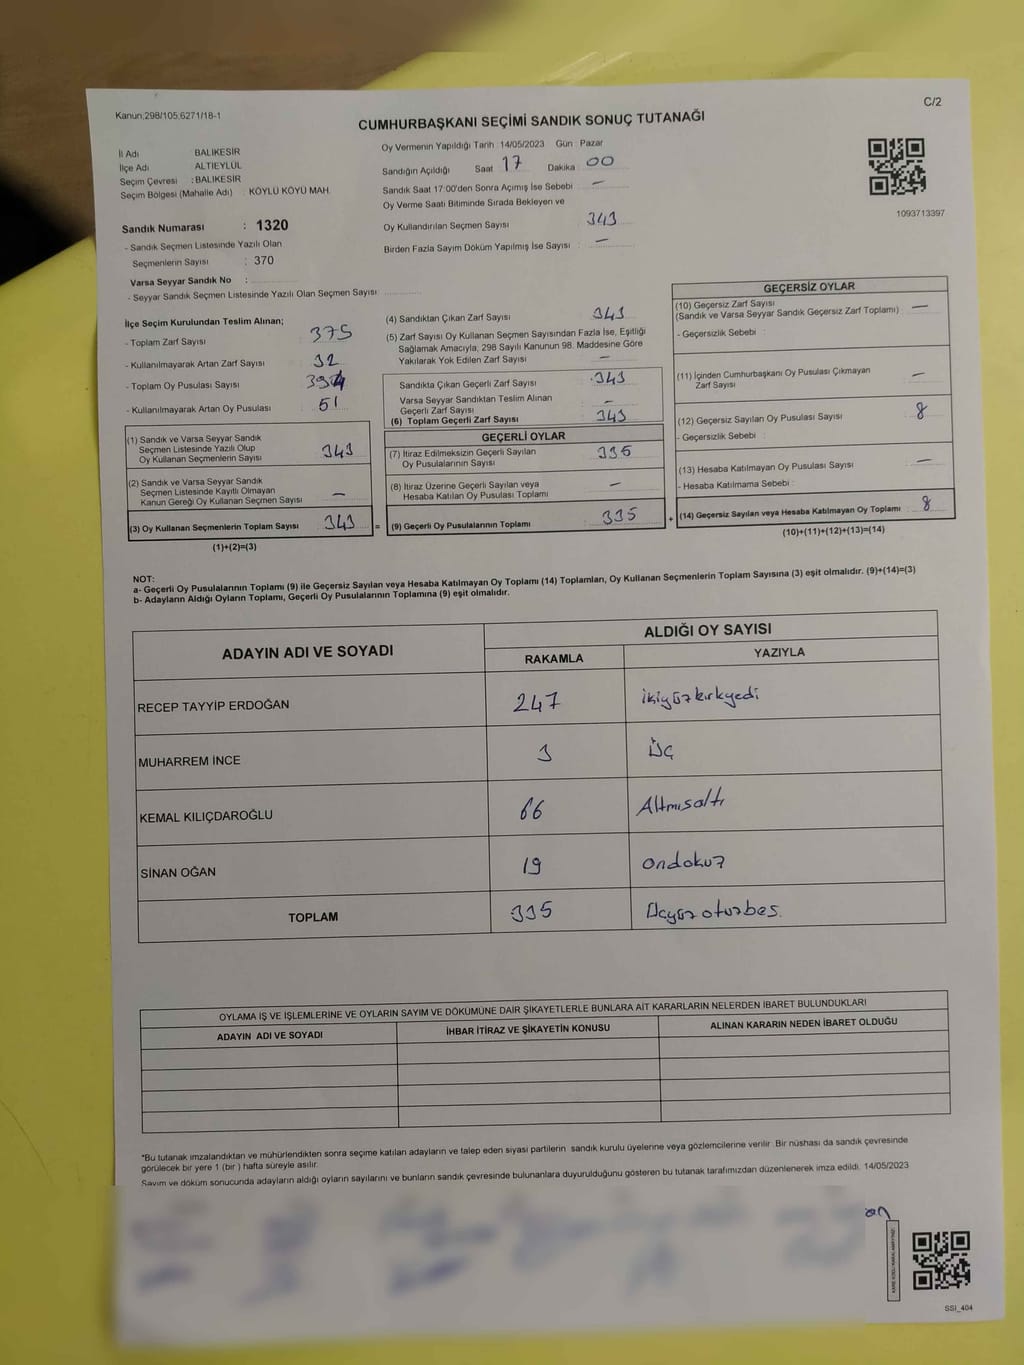 Kanun;298/105,6271/18-1
C/2
CUMHURBAŞKANI SEÇİMİ SANDIK SONUÇ TUTANAĞI
İl Adı BALIKESİR
İlçe Adı ALTIEYLÜL
Seçim Çevresi : BALIKESİR
Seçim Bölgesi (Mahalle Adı) : KÖYLÜ KÖYÜ MAH.
Oy Vermenin Yapıldığı Tarih : 14/05/2023 Gün : Pazar
Sandığın Açıldığı Saat 17 Dakika : 00
Sandık Saat 17:00'den Sonra Açımış İse Sebebi : –
Oy Verme Saati Bitiminde Sırada Bekleyen ve
Oy Kullandırılan Seçmen Sayısı 343
Birden Fazla Sayım Döküm Yapılmış İse Sayısı : –
1093713397
Sandık Numarası : 1320
- Sandık Seçmen Listesinde Yazılı Olan
Seçmenlerin Sayısı : 370
Varsa Seyyar Sandık No :
- Seyyar Sandık Seçmen Listesinde Yazılı Olan Seçmen Sayısı
İlçe Seçim Kurulundan Teslim Alınan;
- Toplam Zarf Sayısı : 375
- Kullanılmayarak Artan Zarf Sayısı : 32
- Toplam Oy Pusulası Sayısı :
- Kullanılmayarak Artan Oy Pusulası : 51
(1) Sandık ve Varsa Seyyar Sandık
Seçmen Listesinde Yazılı Olup
Oy Kullanan Seçmenlerin Sayısı 343
(2) Sandık ve Varsa Seyyar Sandık
Seçmen Listesinde Kayıtlı Olmayan
Kanun Gereği Oy Kullanan Seçmen Sayısı –
(3) Oy Kullanan Seçmenlerin Toplam Sayısı 343 =
(1)+(2)=(3)
(4) Sandıktan Çıkan Zarf Sayısı : 343
(5) Zarf Sayısı Oy Kullanan Seçmen Sayısından Fazla İse, Eşitliği
Sağlamak Amacıyla, 298 Sayılı Kanunun 98. Maddesine Göre
Yakılarak Yok Edilen Zarf Sayısı –
Sandıkta Çıkan Geçerli Zarf Sayısı : 343
Varsa Seyyar Sandıktan Teslim Alınan
Geçerli Zarf Sayısı –
(6) Toplam Geçerli Zarf Sayısı : 343
GEÇERLİ OYLAR
(7) İtiraz Edilmeksizin Geçerli Sayılan
Oy Pusulalarının Sayısı 335
(8) İtiraz Üzerine Geçerli Sayılan veya
Hesaba Katılan Oy Pusulası Toplamı –
(9) Geçerli Oy Pusulalarının Toplamı : 335 +
GEÇERSİZ OYLAR
(10) Geçersiz Zarf Sayısı
(Sandık ve Varsa Seyyar Sandık Geçersiz Zarf Toplamı) : –
- Geçersizlik Sebebi :
(11) İçinden Cumhurbaşkanı Oy Pusulası Çıkmayan
Zarf Sayısı –
(12) Geçersiz Sayılan Oy Pusulası Sayısı : 8
- Geçersizlik Sebebi :
(13) Hesaba Katılmayan Oy Pusulası Sayısı : –
- Hesaba Katılmama Sebebi :
(14) Geçersiz Sayılan veya Hesaba Katılmayan Oy Toplamı : 8
(10)+(11)+(12)+(13)=(14)
NOT:
a- Geçerli Oy Pusulalarının Toplamı (9) ile Geçersiz Sayılan veya Hesaba Katılmayan Oy Toplamı (14) Toplamları, Oy Kullanan Seçmenlerin Toplam Sayısına (3) eşit olmalıdır. (9)+(14)=(3)
b- Adayların Aldığı Oyların Toplamı, Geçerli Oy Pusulalarının Toplamına (9) eşit olmalıdır.
ADAYIN ADI VE SOYADI ALDIĞI OY SAYISI
RAKAMLA YAZIYLA
RECEP TAYYİP ERDOĞAN 247 ikiyüzkırkyedi
MUHARREM İNCE 3 Üç
KEMAL KILIÇDAROĞLU 66 Altmışaltı
SİNAN OĞAN 19 ondokuz
TOPLAM 335 Üçyüzotuzbeş.
OYLAMA İŞ VE İŞLEMLERİNE VE OYLARIN SAYIM VE DÖKÜMÜNE DAİR ŞİKAYETLERLE BUNLARA AİT KARARLARIN NELERDEN İBARET BULUNDUKLARI
ADAYIN ADI VE SOYADI İHBAR İTİRAZ VE ŞİKAYETİN KONUSU ALINAN KARARIN NEDEN İBARET OLDUĞU
*Bu tutanak imzalandıktan ve mühürlendikten sonra seçime katılan adayların ve talep eden siyasi partilerin sandık kurulu üyelerine veya gözlemcilerine verilir. Bir nüshası da sandık çevresinde
görülecek bir yere 1 (bir ) hafta süreyle asılır.
Sayım ve döküm sonucunda adayların aldığı oyların sayılarını ve bunların sandık çevresinde bulunanlara duyurulduğunu gösteren bu tutanak tarafımızdan düzenlenerek imza edildi. 14/05/2023
SSI_404